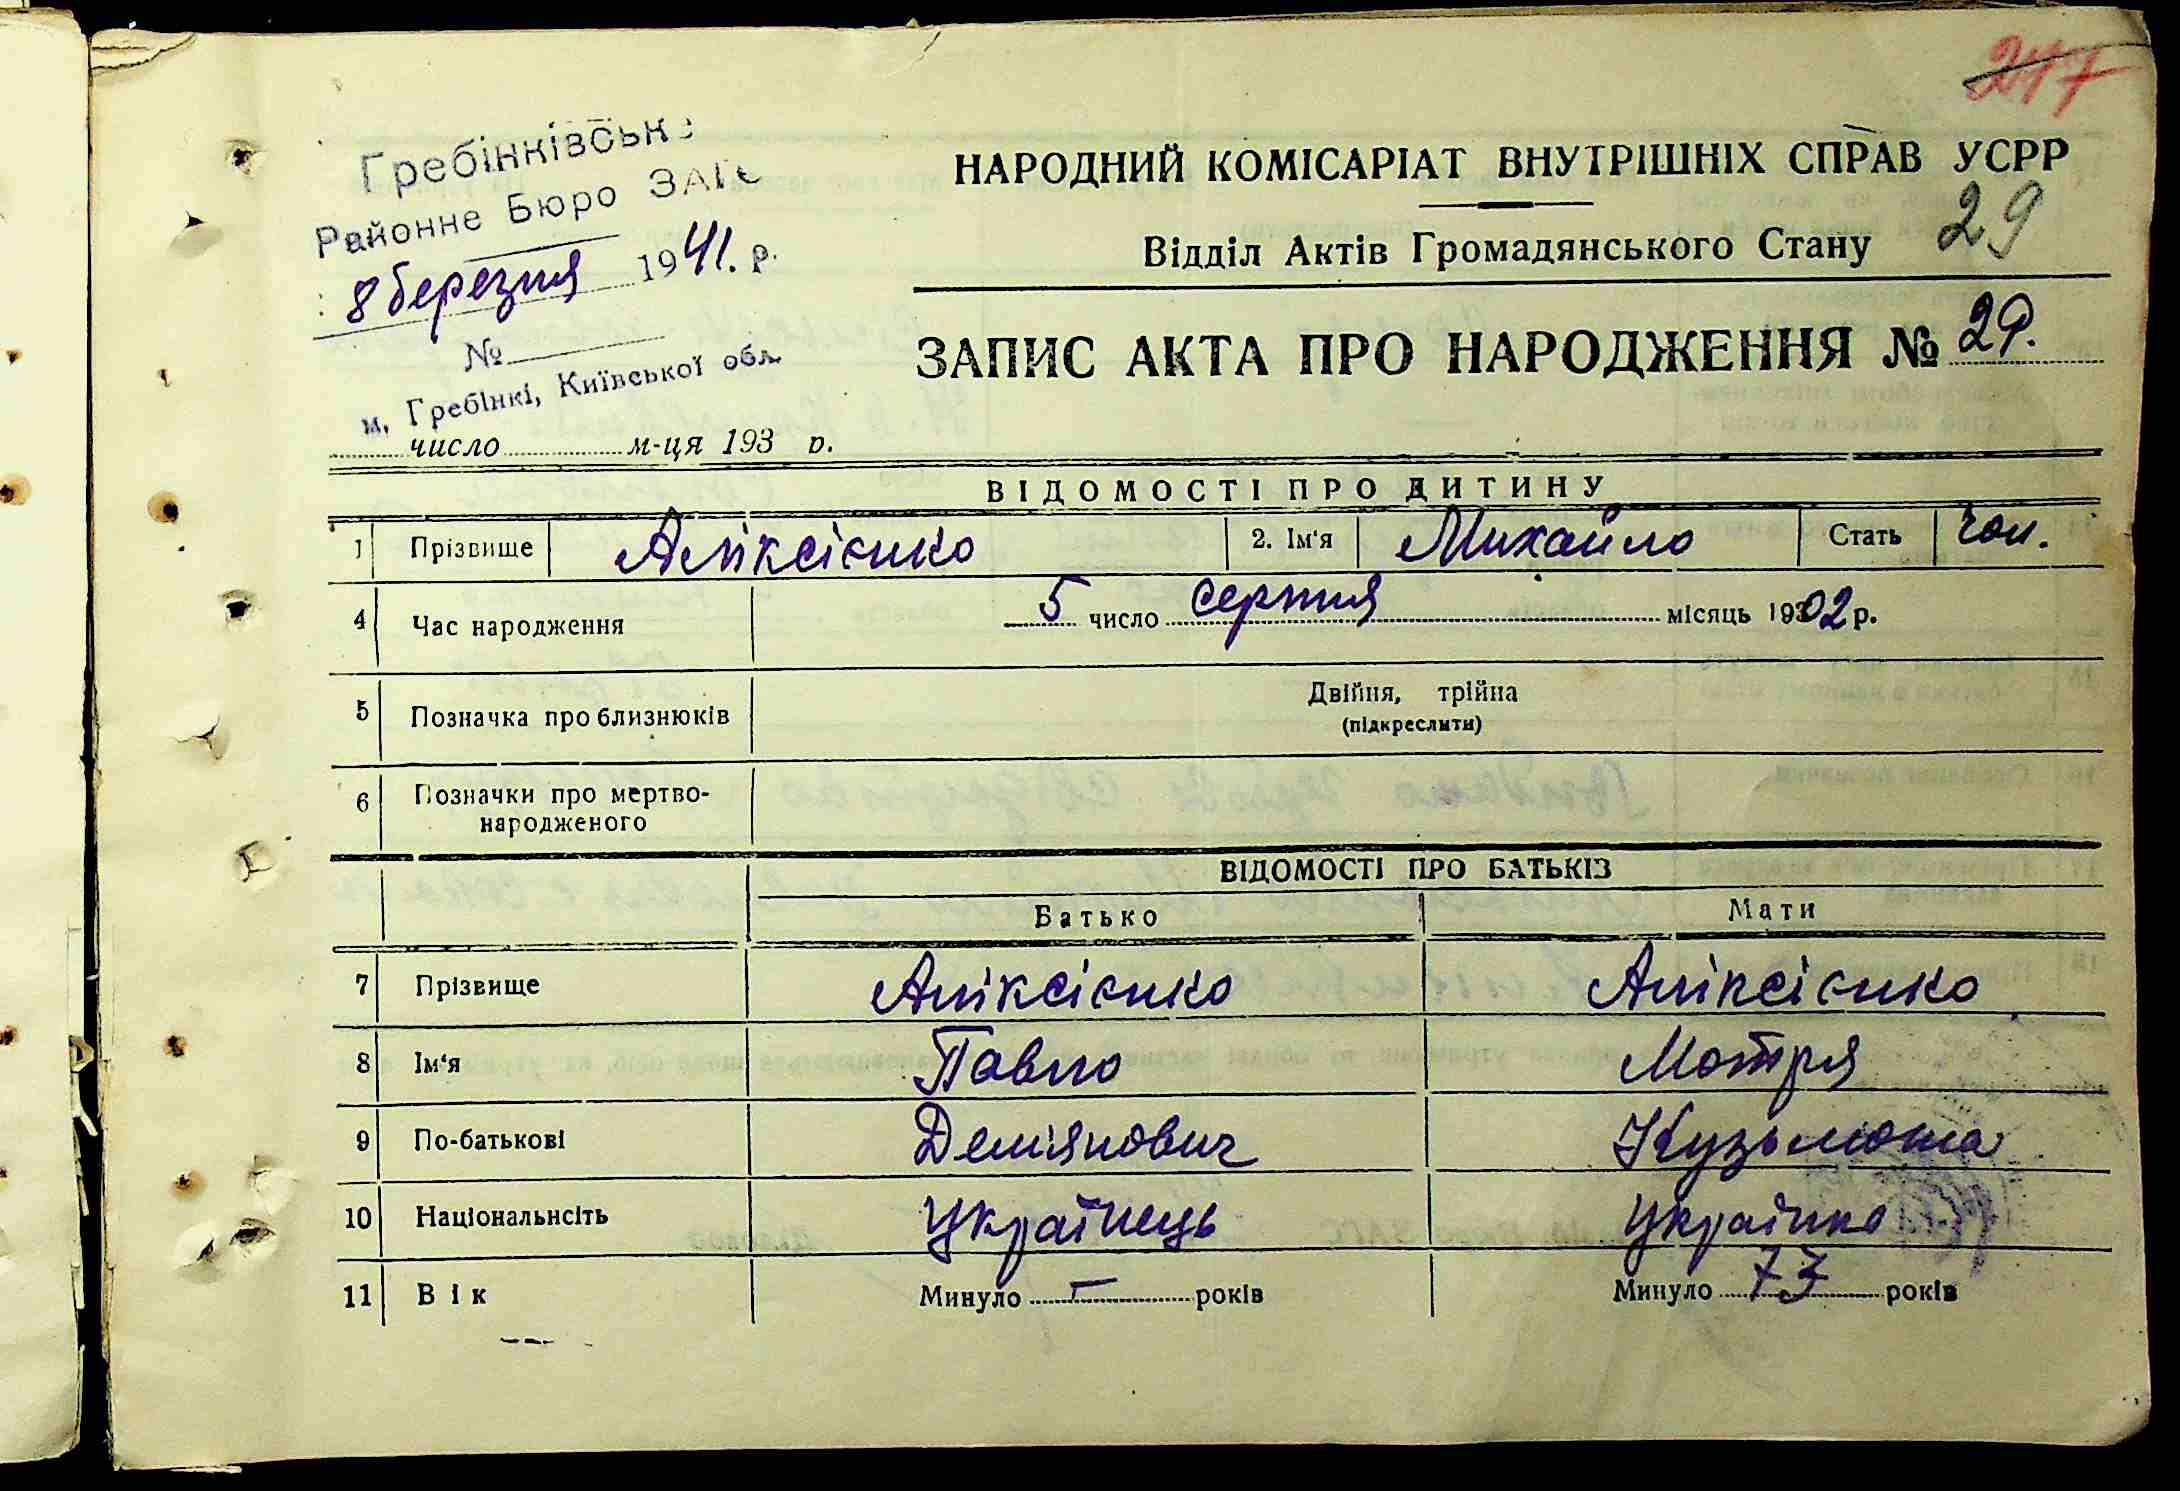 217
Гребінківське
Районне Бюро ЗАГС
8 березня 1941. р.
№
м. Гребінкі, Київської обл.
число м-ця 193 р.
НАРОДНИЙ КОМІСАРІАТ ВНУТРІШНІХ СПРАВ УСРР
Відділ Актів Громадянського Стану 29
ЗАПИС АКТА ПРО НАРОДЖЕННЯ № 29.
ВІДОМОСТІ ПРО ДИТИНУ
1 Прізвище Аліксієнко 2. Ім‘я Михайло Стать чол.
4 Час народження 5 число серпня місяць 1902 р.
5 Позначка про близнюків Двійня, трійна
(підкреслити)
6 Позначки про мертво-
народженого
ВІДОМОСТІ ПРО БАТЬКІВ
Батько Мати
7 Прізвище Аліксієнко Аліксієнко
8 Ім‘я Павло Мотря
9 По-батькові Дем'янович Кузьмовна
10 Національнсіть Українець Українка
11 Вік Минуло — років Минуло 73 років